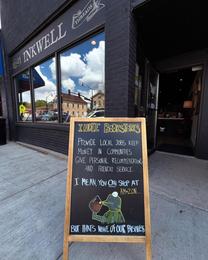 INKWELL
INDIE BOOKSTORES
PROVIDE LOCAL JOBS, KEEP
MONEY IN COMMUNITIES
GIVE PERSONAL RECOMMENDATIONS
AND FRIENDLY SERVICE.
I MEAN, YOU CAN SHOP AT
AMAZON,
BUT THAT'S NONE OF OUR BUSINESS